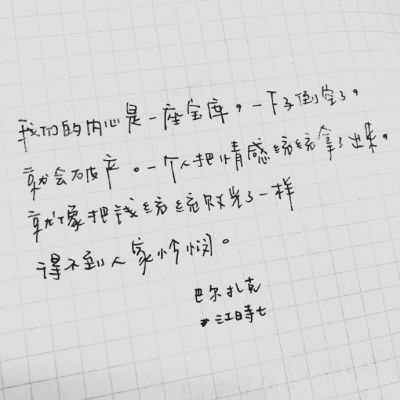 我们的内心是一座宝库，一下子倒空了，
就会破产。一个人把情感统统拿了出来，
就像把钱统统败光了一样
得不到人家怜悯。
巴尔扎克
#江時七